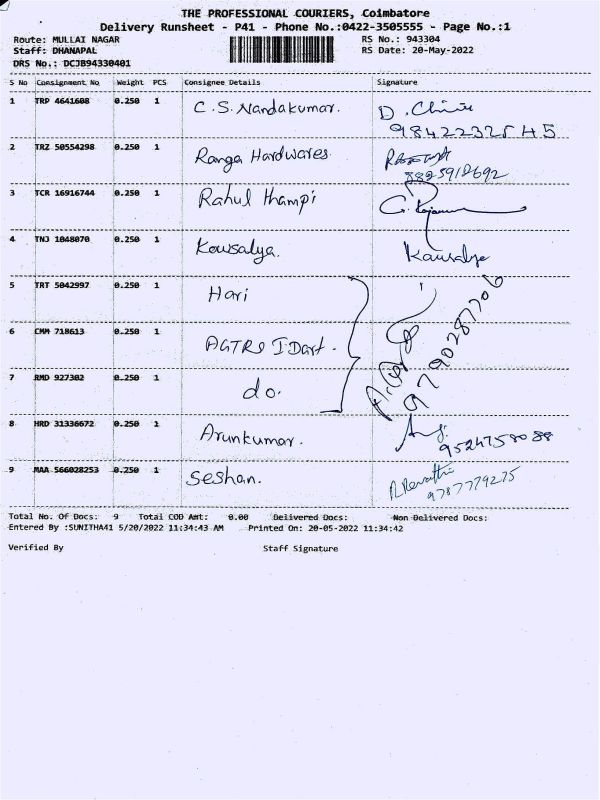 THE PROFESSIONAL COURIERS, Coimbatore
Delivery Runsheet - P41 - Phone No.:0422-3505555 - Page No.:1
Route: MULLAI NAGAR RS No.: 943304
Staff: DHANAPAL RS Date: 20-May-2022
DRS No.: DCJB94330401
S No Consignment No Weight PCS Consignee Details Signature
1 TRP 4641608 0.250 1 C.S.Nandakumar.
2 TRZ 50554298 0.250 1 Ranga Hardwares
3 TCR 16916744 0.250 1 Rahul thampi
4 TNJ 1048070 0.250 1 Kowsalya. Kausalya
5 TRT 5042997 0.250 1 Hari
6 CMM 718613 0.250 1
7 RMD 927302 0.250 1 do.
9790287706
8 HRD 31336672 0.250 1 Arunkumar.
9524758088
9 MAA 566028253 0.250 1 Seshan. R Revathi
9787779275
Total No. Of Docs: 9 Total COD Amt: 0.00 Delivered Docs: Non Delivered Docs:
Entered By :SUNITHA41 5/20/2022 11:34:43 AM Printed On: 20-05-2022 11:34:42
Verified By Staff Signature